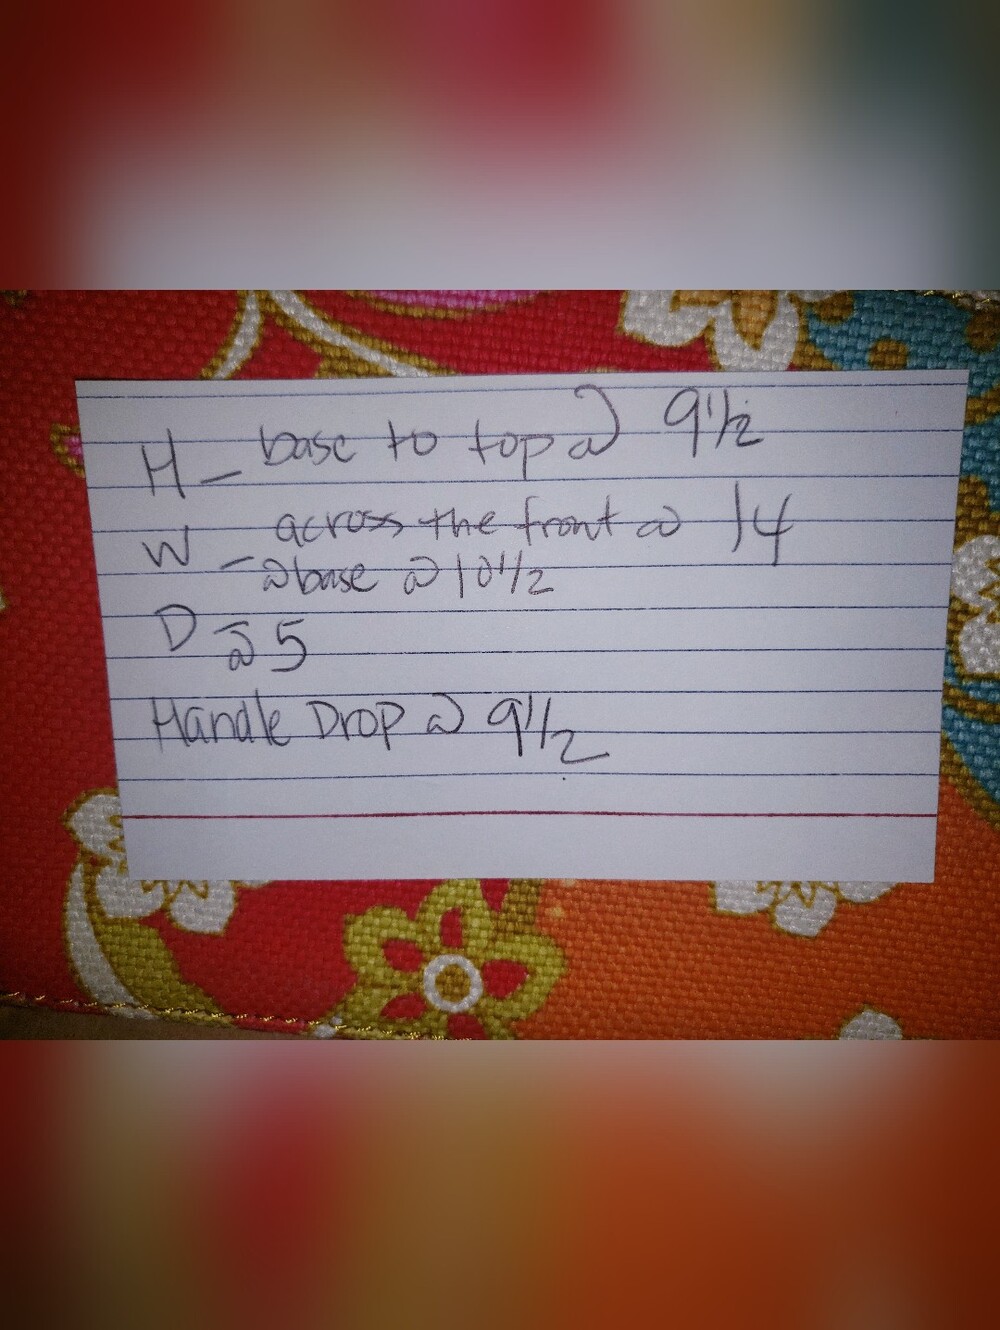 H - base to top @ 9 1/2
W - across the front @ 14
@ base @ 10 1/2
D @ 5
Handle Drop @ 9 1/2